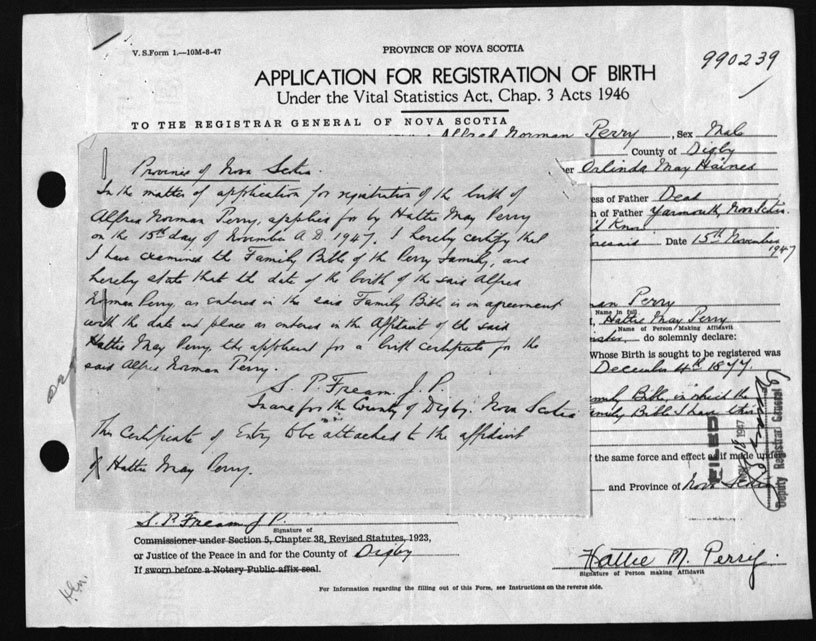 V. S. Form 1.—10M-8-47
PROVINCE OF NOVA SCOTIA
990239
APPLICATION FOR REGISTRATION OF BIRTH
Under the Vital Statistics Act, Chap. 3 Acts 1946
TO THE REGISTRAR GENERAL OF NOVA SCOTIA
Alfred Norman Perry, Sex Male
County of Digby
er Orlinda May Haines
ess of Father Dead
h of Father Yarmouth, Nova Scotia
Date 15th November
1947
Province of Nova Scotia.
In the matter of application for registration of the birth of
Alfred Norman Perry, applied for by Hattie May Perry
on the 15th day of November A. D. 1947. I hereby certify that
I have examined the Family Bible of the Perry Family, and
hereby state that the date of the birth of the said Alfred
Norman Perry as entered in the said Family Bible is in agreement
with the date and place as entered in the Affidavit of the said
Hattie May Perry, the applicant for a birth certificate for the
said Alfred Norman Perry.
S. P. Fream J. P.
In and for the County of Digby. Nova Scotia
This Certificate of Entry to be attached to the affidavit
of Hattie May Perry.
man Perry
Name in full
Hattie May Perry
Name of Person Making Affidavit
do solemnly declare:
Whose Birth is sought to be registered was
December 4th 1877.
amily Bible, in which the
amily Bible I have this
FILED
1947
Deputy Registrar General
f the same force and effect as if made under
and Province of Nova Scotia
S. P. Fream J P.
Signature of
Commissioner under Section 5, Chapter 38, Revised Statutes, 1923,
or Justice of the Peace in and for the County of Digby
If sworn before a Notary Public affix seal.
Hattie M. Perry.
Signature of Person making Affidavit
For Information regarding the filling out of this Form, see Instructions on the reverse side.